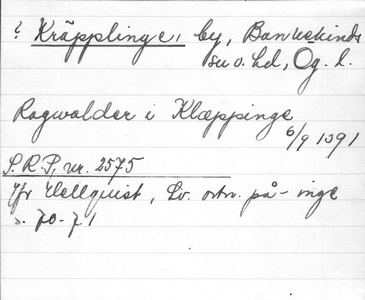 ? Kräpplinge, by, Bankekinds
sn o. hd, Ög. l.
Ragwalder i Klæppinge
6/9 1391
S.R.P. nr. 2575
Jfr Hellquist, Sv. ortn. på -inge
s. 70-71